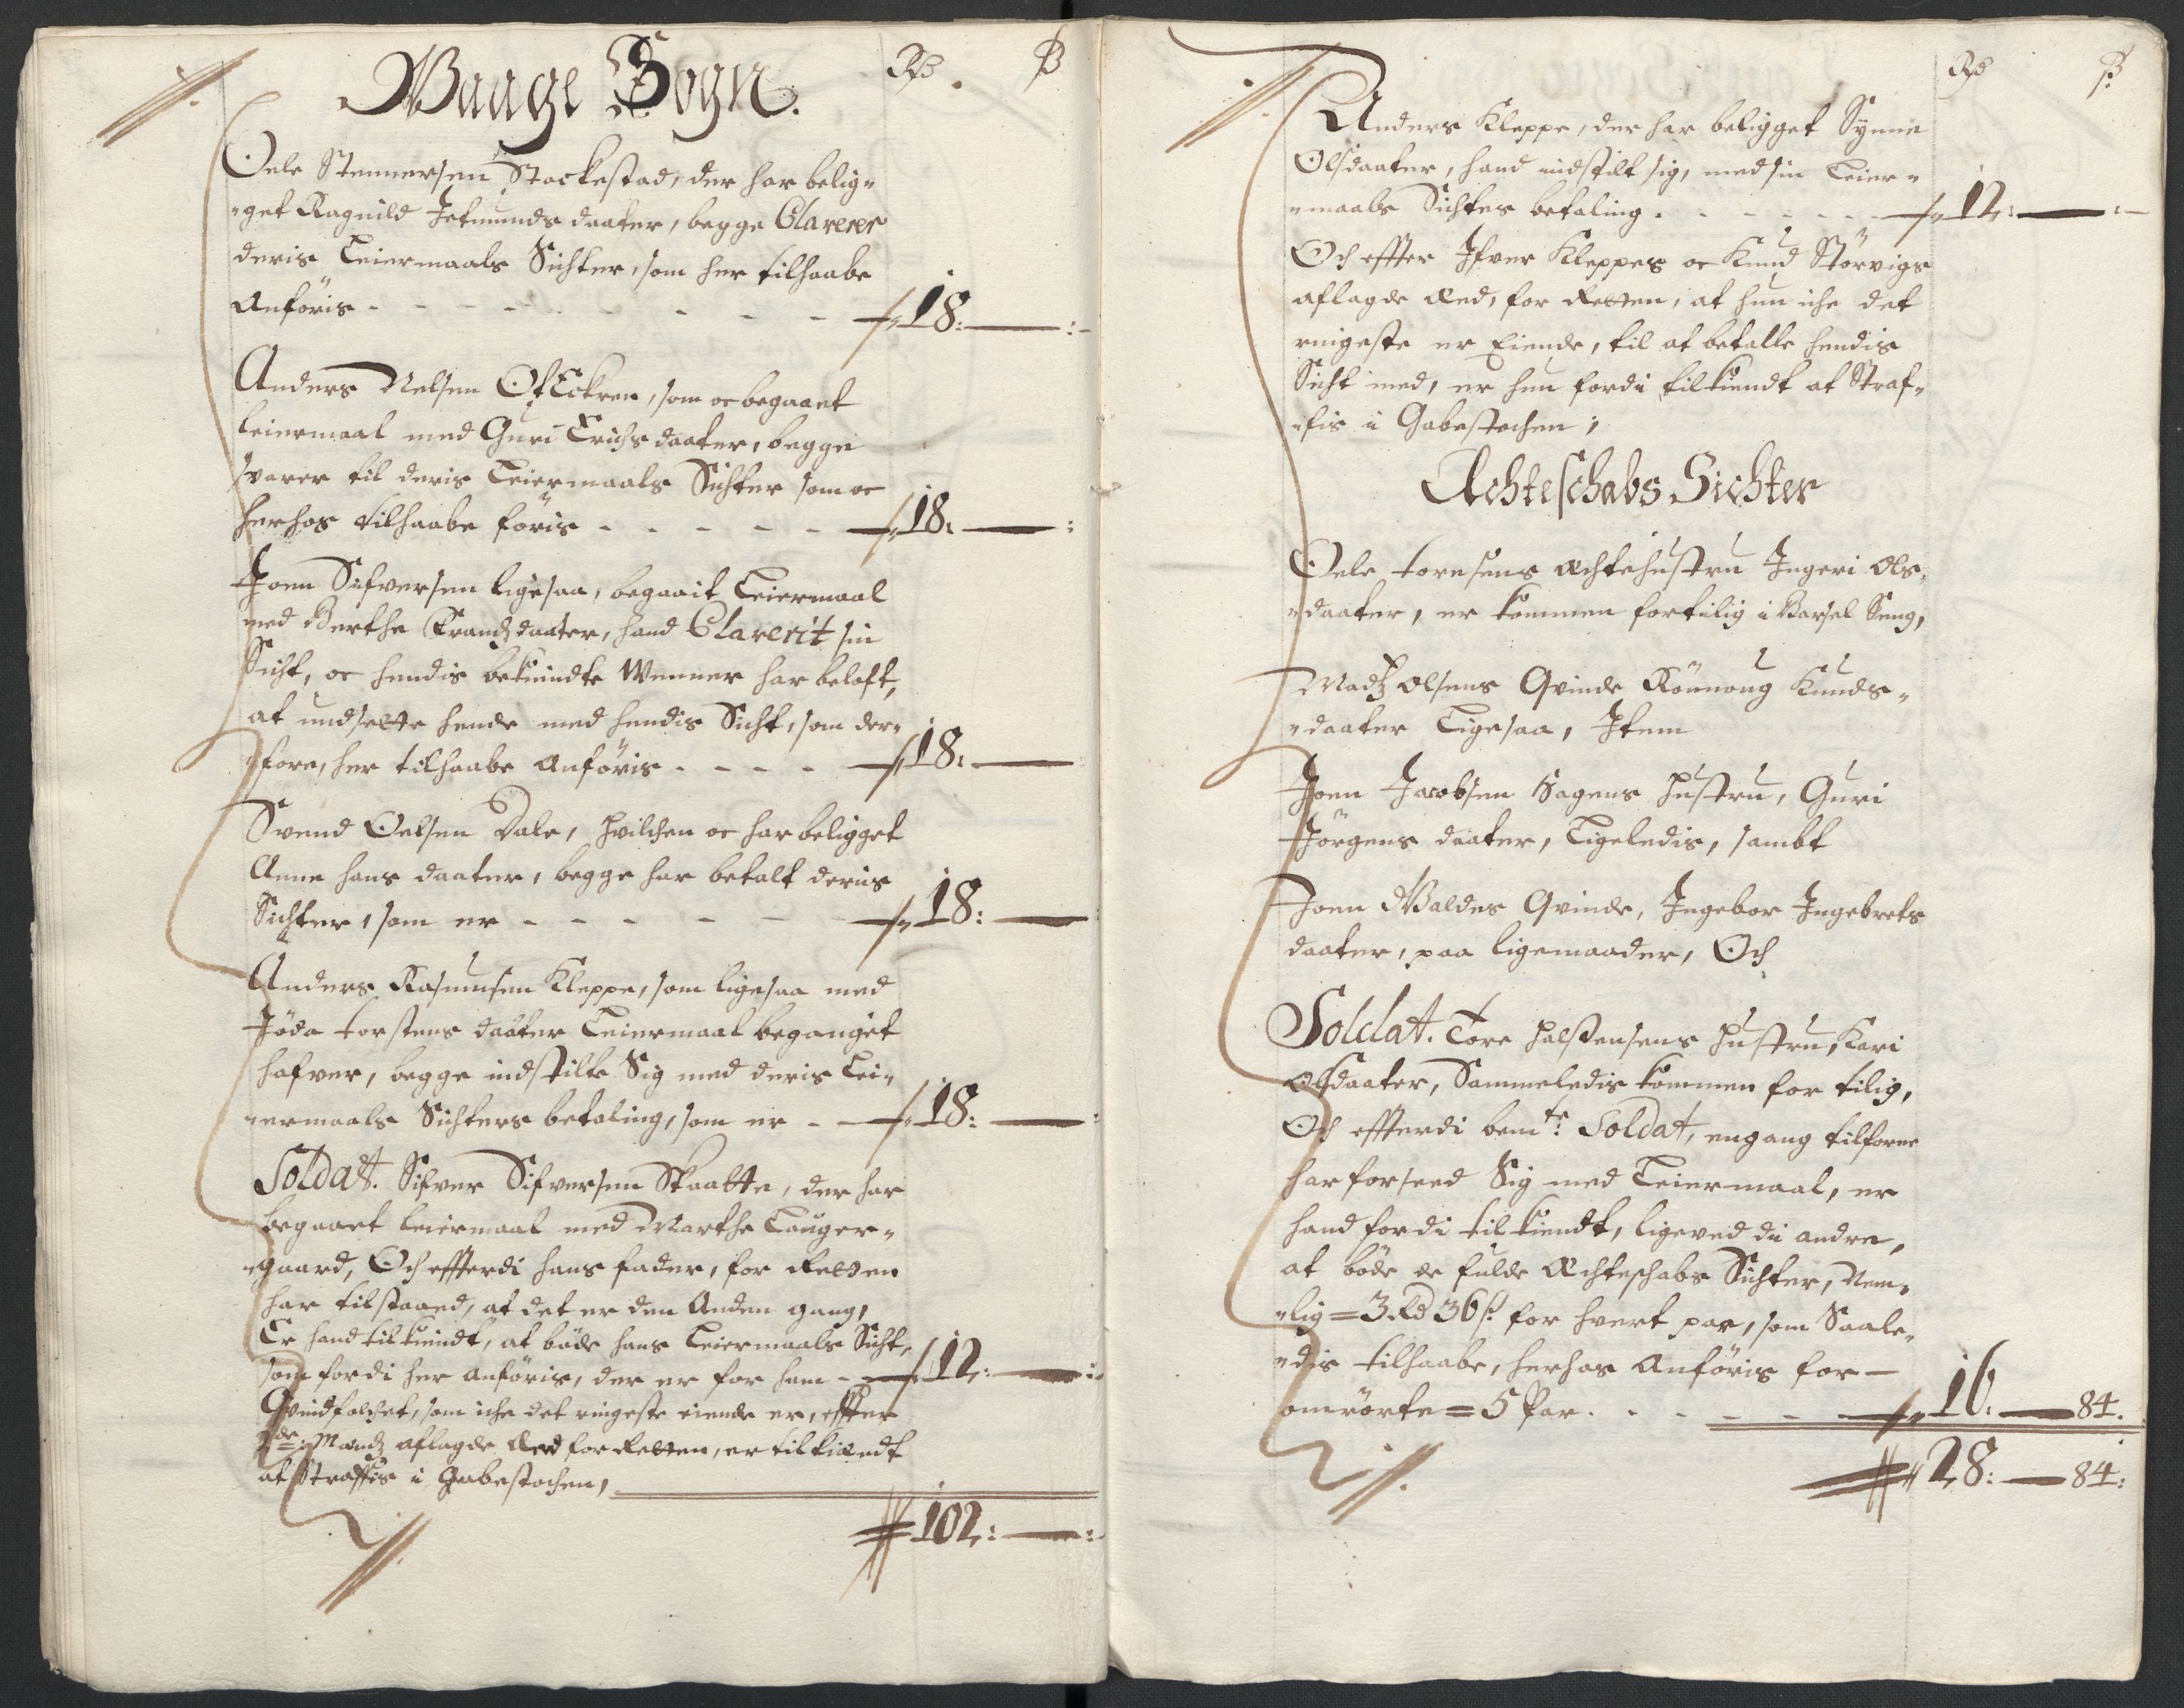 Waage Sogn.
Rd ß
Oele Stennersen Stockestad, der har belig„
„get Ragnild Jetmunds daater, begge Clarerer
deris Leiermaals Sichter, som her tilhaabe
Anföris - - - - - - - - - 18: — :
Anders Nelsen Ofeckren, som oc begaaet
leiermaal med Guri Erichsdaater, begge
svarer til deris Leiermaals Sichter som oc
herhos tilhaabe föris - - - - - 18: — :
Joen Sifversen ligesaa, begaait Leiermaal
med Berthe Frandzdaater, hand Clarerit sin
Sicht, oc hendis bekiendte Wenner har beloft,
at undsette hende med hendis Sicht, som der„
„fore, her tilhaabe Anföris - - - - 18: —
Svend Oelsen Dale, hvilchen oc har beligget
Anne hans daater, begge har betalt deris
Sichter, som er - - - - - 18: —
Anders Rasmusen Kleppe, som ligesaa med
Jöda torstens daater Leiermaal beganget
hafver, begge indstilte Sig med deris Lei„
„ermaals Sichters betaling, som er - - 18: — :
Soldat. Sifver Sifversen Skaatte, der har
begaaet leiermaal med Marthe Lauger„
„gaard, Och effterdi hans fader, for Retten
har tilstaaed, at det er den Anden gang,
Er hand tilkiendt, at böde hans Leiermaals Sicht,
som fordi her anföris, der er for ham - - 12: — :
Qvindfolchet, som iche det ringeste eiende er, effter
2de: Mændz aflagde Aed for Retten, er tilkiendt
at straffis i Gabestochen,
102: — :
Rd ß
Anders Kleppe, der har beligget Synne
Olsdaater, hand indstilt sig, med sin Leier„
„maals Sichtes betaling . - - - - - 12: — :
Och effter Ifver Kleppes oc Knud Störvigs
aflagde Aed, for Retten, at hun iche det
ringeste er Eiende, til at betalle hendis
Sicht med, er hun fordi tilkiendt at Straf„
„fis i Gabestochen,
Achteschabs Sichter
Oele toresens Achtehustru Ingeri Ols„
„daater, er kommen fortilig i Barsel Seng,
Madz olsens Qvinde Rönnoug Knuds„
„daater Ligesaa, Item
Joen Jacobsen Hagens hustru, Guri
Jörgens daater, Ligeledis, sambt
Joen Waldes Qvinde, Ingebor Ingebrets
daater, paa ligemaader, Och
Soldat. Tore halstensens hustru, Kari
Olsdaater, Sammeledis kommen for tilig,
Och effterdi bemte: Soldat, engang tilforne
har forseed Sig med Leiermaal, er
hand fordi tilkiendt, ligeved di andre,
at böde de fulde Achteschabs Sichter, Nem„
„lig = 3 Rd 36 ß: for hvert par, som Saale„
„dis tilhaabe, herhos Anföris for —
omrörte = 5 Par . - - - - - 16: — 84.
28: — 84: